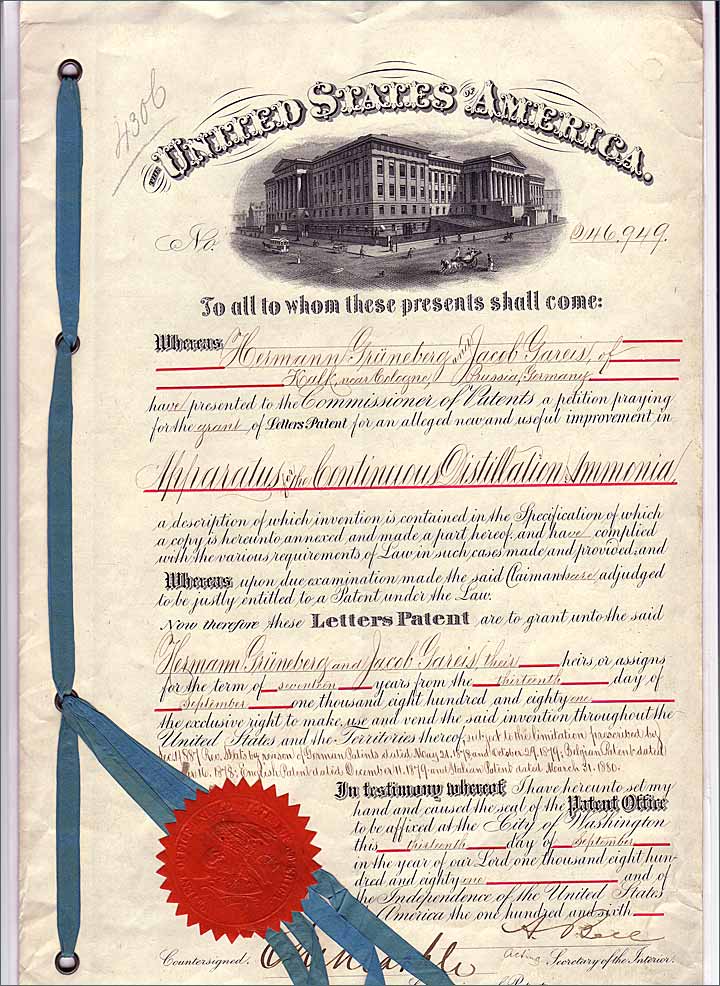 4306
THE UNITED STATES OF AMERICA.
No. 246,949.
To all to whom these presents shall come:
Whereas Hermann Grüneberg and Jacob Gareis, of
Kalk, near Cologne, Prussia, Germany,
have presented to the Commissioner of Patents a petition praying
for the grant of Letters Patent for an alleged new and useful improvement in
Apparatus for the Continuous Distillation Ammonia,
a description of which invention is contained in the Specification of which
a copy is hereunto annexed and made a part hereof, and have complied
with the various requirements of Law in such cases made and provided, and
Whereas upon due examination made the said Claimants are adjudged
to be justly entitled to a Patent under the Law.
Now therefore these Letters Patent are to grant unto the said
Hermann Grüneberg and Jacob Gareis, their heirs or assigns
for the term of seventeen years from the thirteenth day of
September one thousand eight hundred and eighty one
the exclusive right to make, use and vend the said invention throughout the
United States and the Territories thereof, subject to the limitation prescribed by
Sec. 4887, Rev. Stats by reason of German Patents dated May 24, 1878 and October 29, 1879, Belgian Patent dated
16, 1878, English Patent dated December 11, 1879 and Italian Patent dated March 31, 1880.
In testimony whereof I have hereunto set my
hand and caused the seal of the Patent Office
to be affixed at the City of Washington
this thirteenth day of September
in the year of our Lord one thousand eight hun-
dred and eighty one and of
the Independence of the United States
of America the one hundred and sixth
A. Bell
Countersigned. Acting Secretary of the Interior.